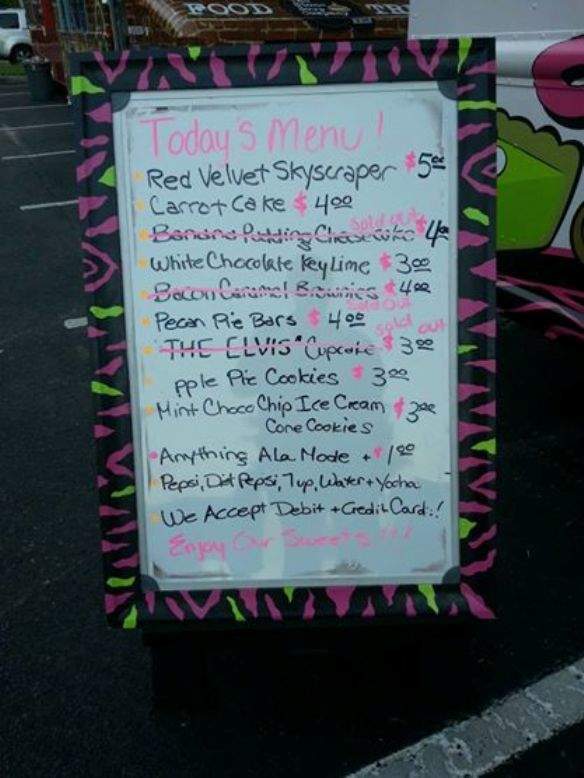 FOOD
Today's Menu!
Red Velvet Skyscraper $5.00
Carrot Cake $4.00
Sold out
Banana Pudding Cheesecake $4.00
White Chocolate Key Lime $3.00
Bacon Caramel Brownies $4.00
Sold Out
Pecan Pie Bars $4.00
sold out
"THE ELVIS" Cupcake $3.00
pple Pie Cookies $3.00
Mint Choco Chip Ice Cream $3.00
Cone Cookies
Anything Ala Mode + $1.00
Pepsi, Diet Pepsi, 7up, Water + Yooha
We Accept Debit + Credit Card:!
Enjoy Our Sweets !!!